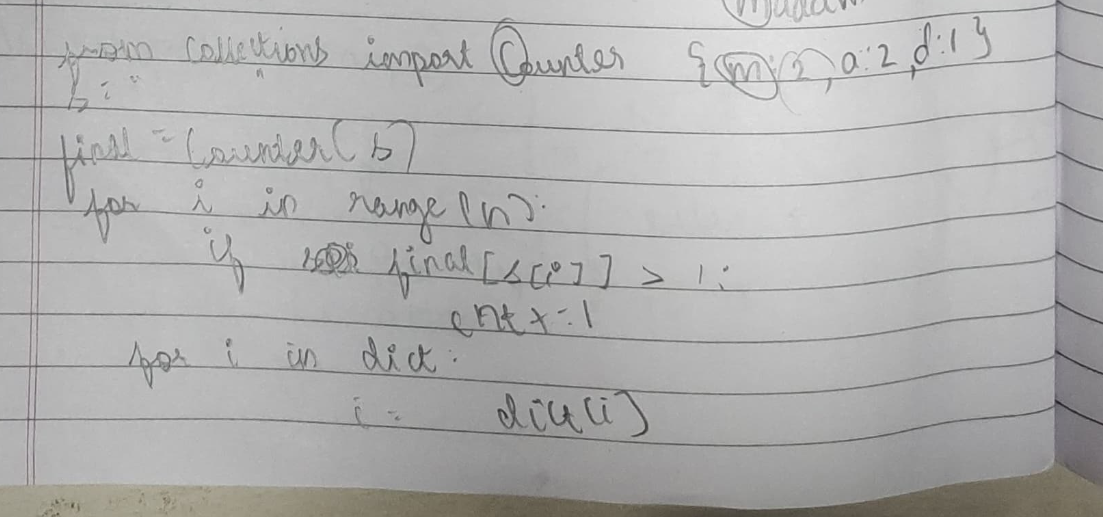 Madam
from collections import Counter {m:2, a:2, d:1}
s = " "
final = Counter(s)
for i in range(n):
if final[s[i]] > 1:
cnt+=1
for i in dict:
i = dict[i]